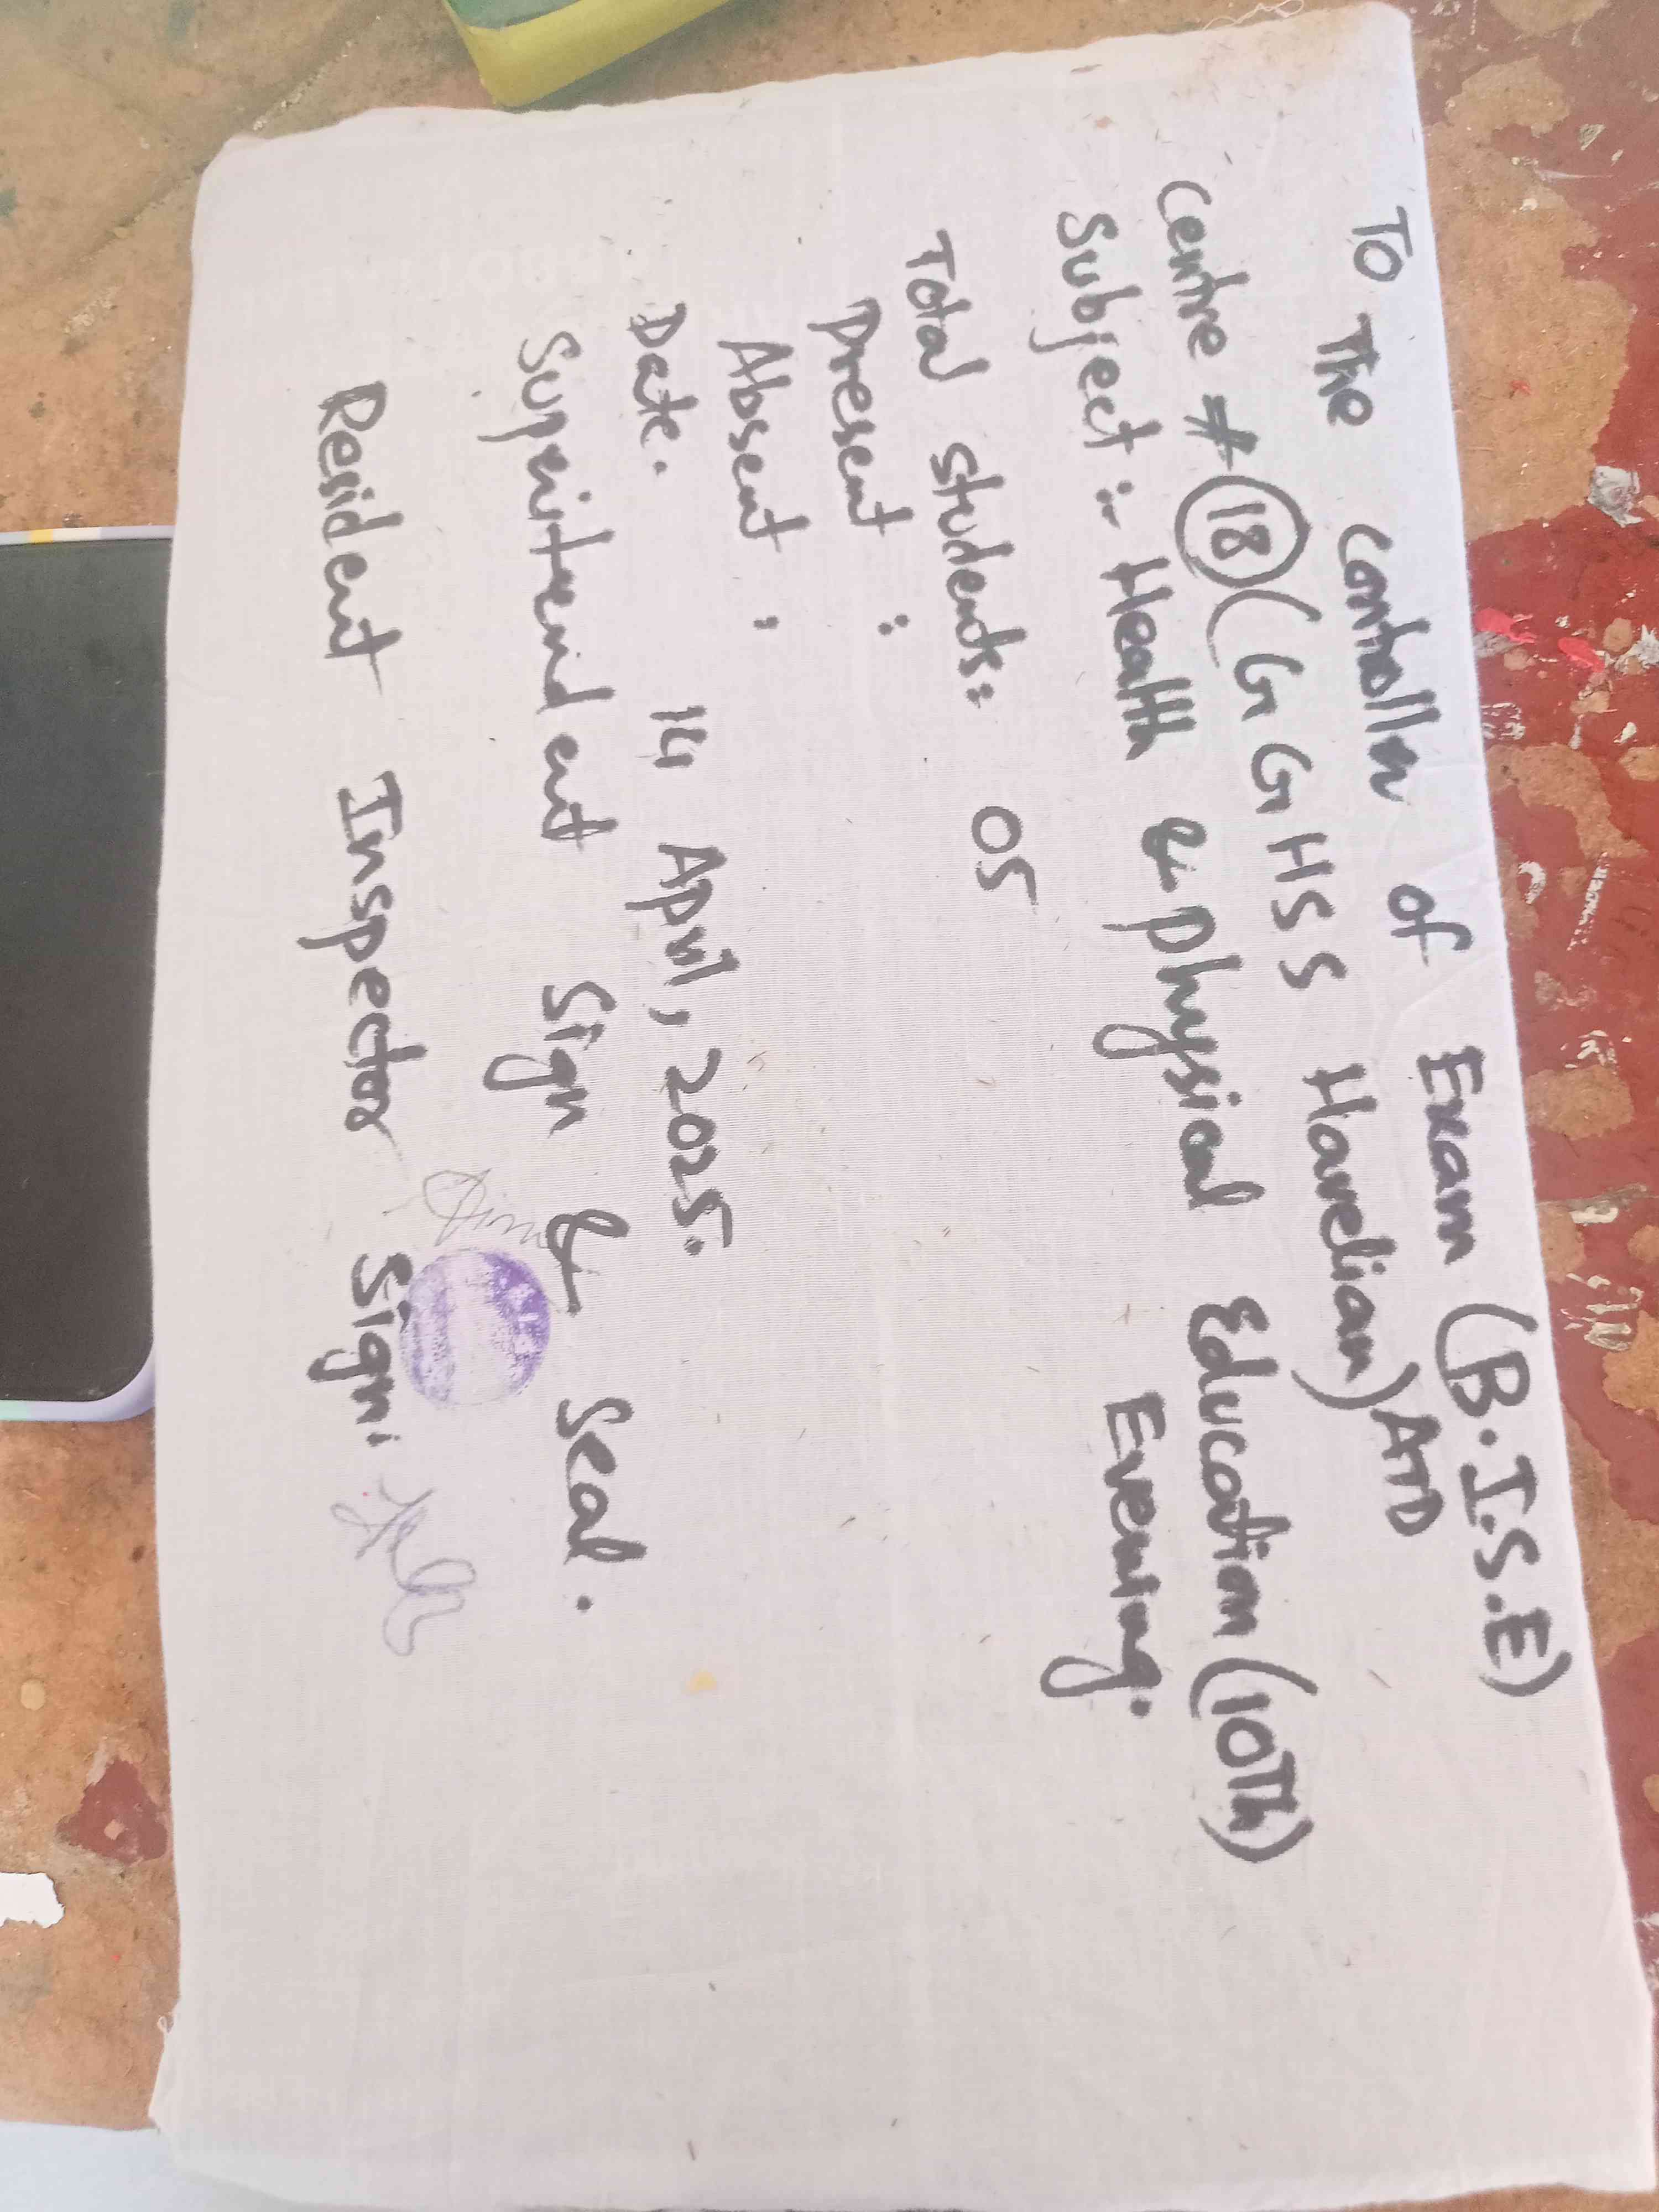 To The Controller of Exam (B.I.S.E) ATD
Centre # 18 (GGHSS Havelian)
Subject :- Health & Physical Education (10Th)
Evening.
Total students: 05
Present :
Absent :
Date. 14 April, 2025.
Supritendent Sign & Seal.
Resident Inspector Sign: